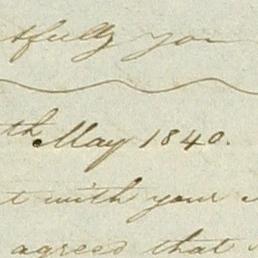 tfully you
th May 1840.
t with your
agreed that